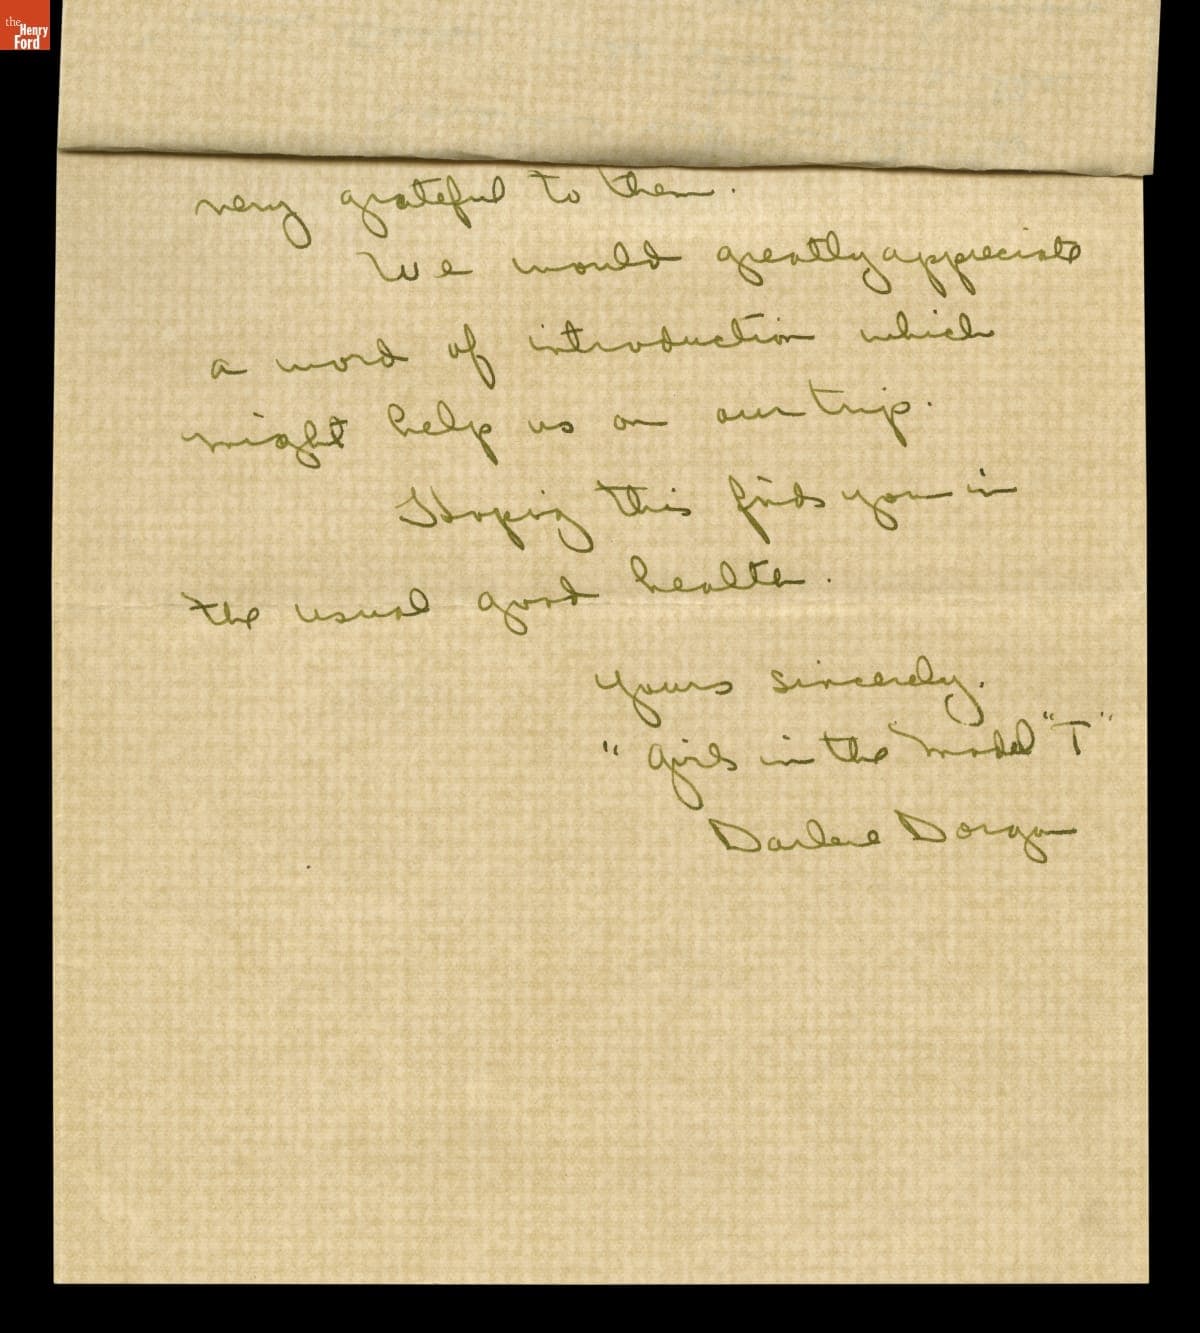 the
Henry
Ford
very grateful to them.
We would greatly appreciate
a word of introduction which
might help us on our trip.
Hoping this finds you in
the usual good health.
Yours sincerely.
"Girls in the Model "T"
Darlene Dorgan